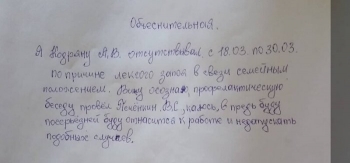 Объеснительная.
Я Кодряну А.В. отсутствовал с 18.03. по 30.03.
По причине легкого запоя в связи семейным
положением. Вину осознал, профелактическую
беседу провел В.С, каюсь, в предь буду
посерьёдней буду относится к работе и недопускать
подобных случаев.